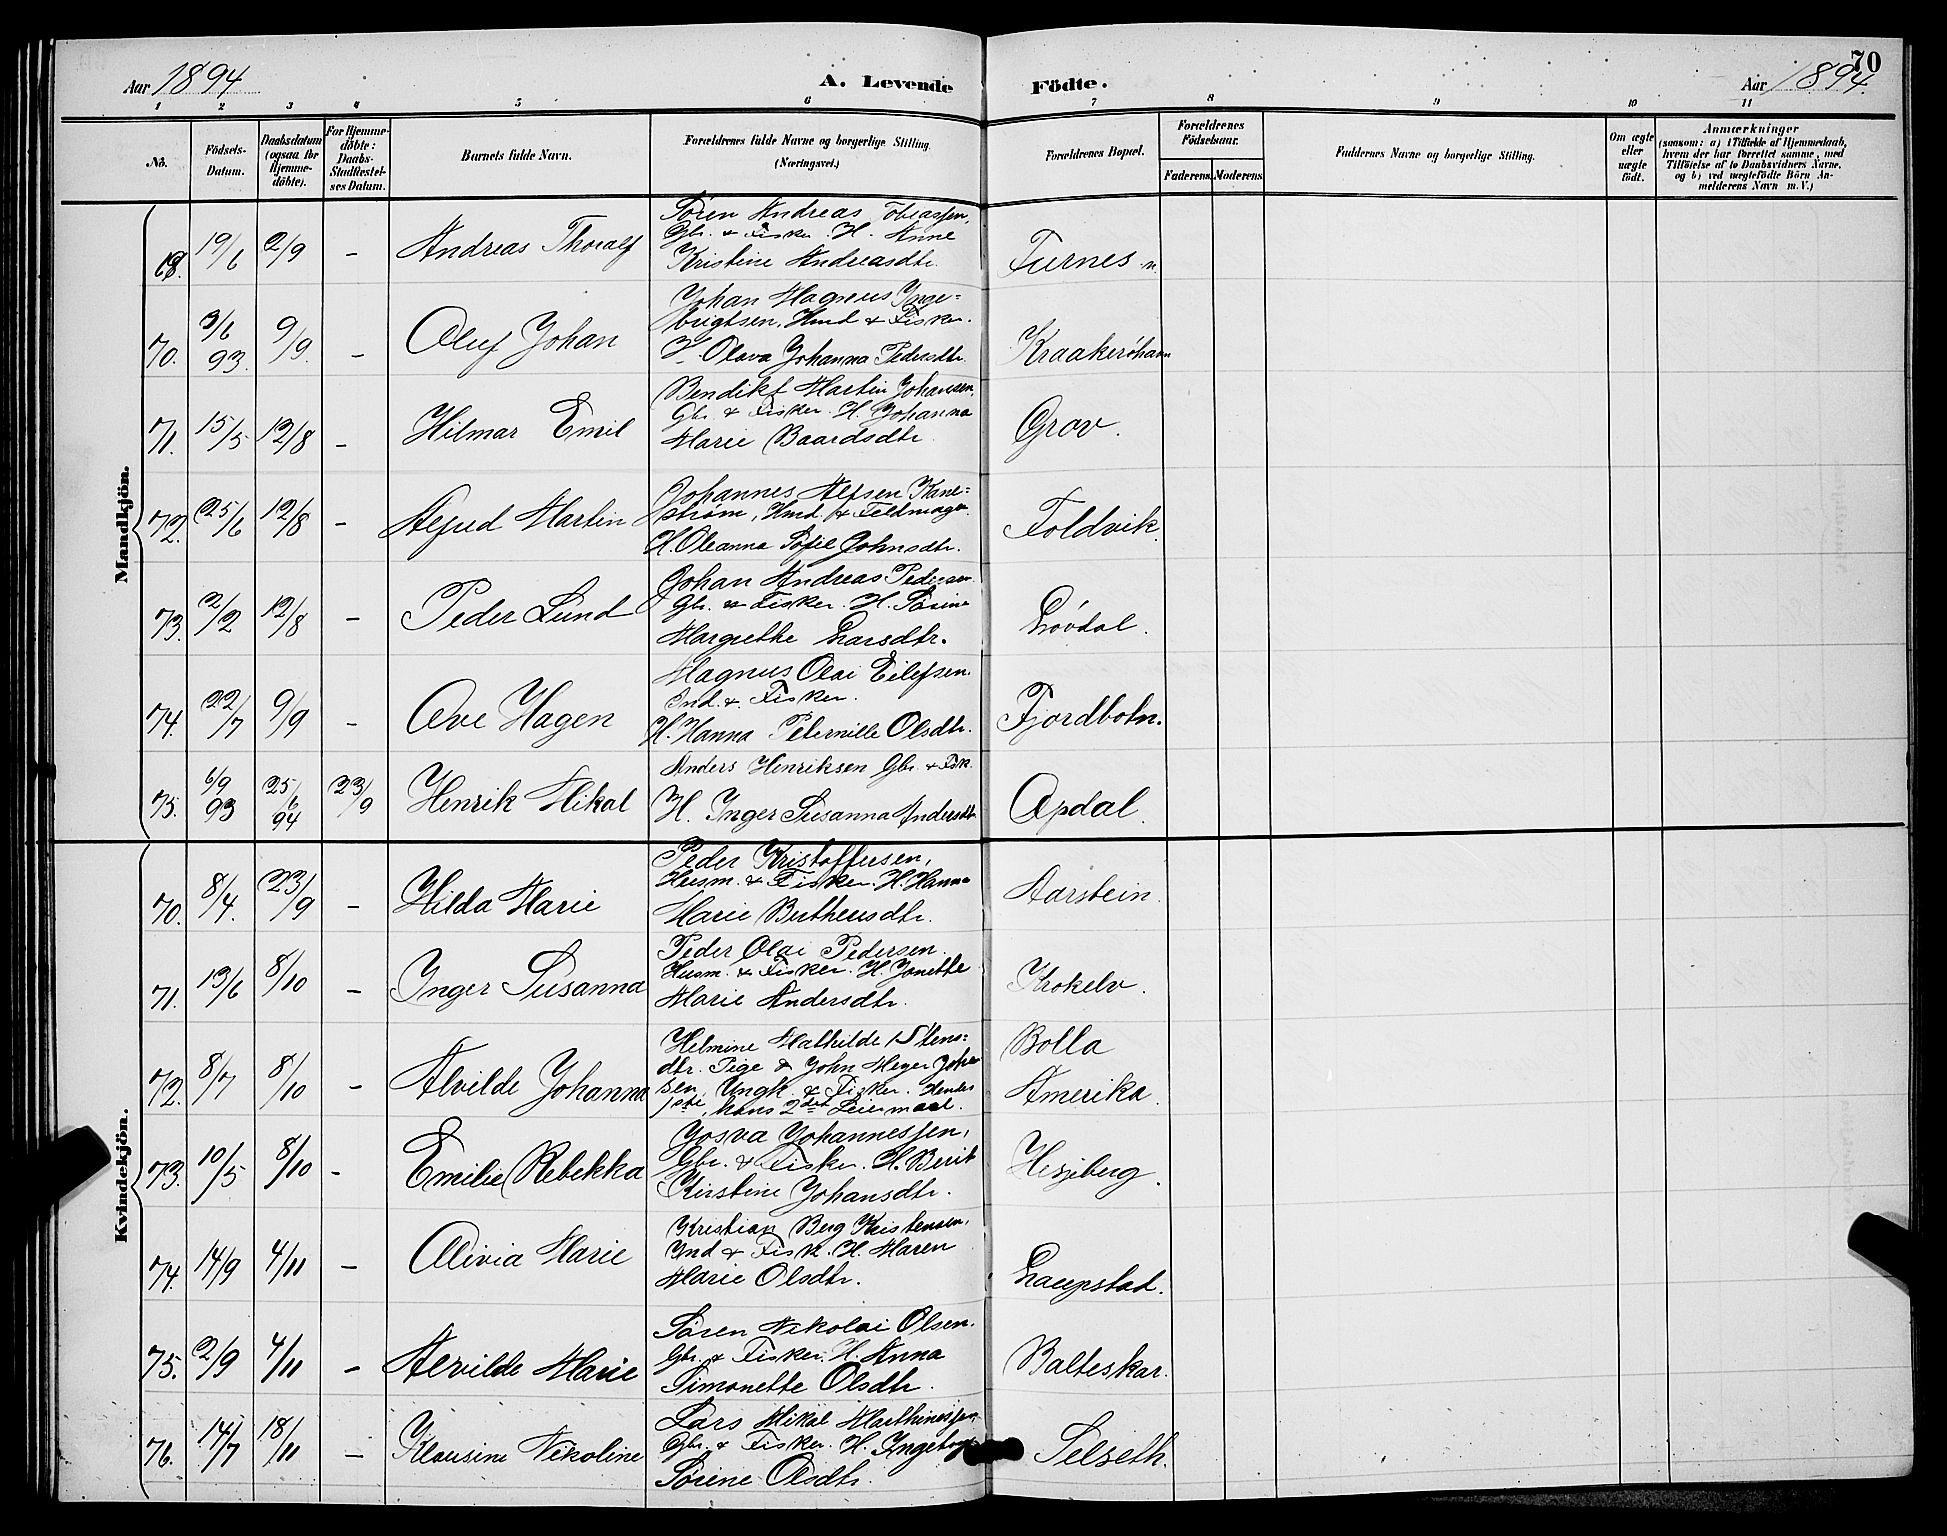 70
Aar 1894
A. Levende
Födte.
Aar 1894.
1 2 3 4 5 6 7 8 9 10 11
No.
Födsels-
Datum.
Daabsdatum
(ogsaa for
Hjemme-
döbte).
For Hjemme-
döbte:
Daabs-
Stadfæstel-
ses Datum.
Barnets fulde Navn.
Forældrenes fulde Navne og borgerlige Stilling.
(Næringsvei.)
Forældrenes Bopæl.
Forældrenes
Födselsaar.
Faderens. Moderens.
Faddernes Navne og borgerlige Stilling.
Om ægte
eller
uægte
födt.
Anmærkninger
(saasom: a) i Tilfælde af Hjemmedaab,
hvem der har forrettet samme, med
Tilföielse af to Daabsvidners Navne,
og b) ved uægtefödte Börn An-
melderens Navn m. V.)
Mandkjön.
19/6 2/9 - Andreas Thoralf
Søren Andreas Tobiassen,
Gbr. & Fisker. H. Anne
Kristine Andreasdtr.
Furnes
70. 3/6 93. 9/9. - Oluf Johan
Johan Magnus Inge=
brigtsen, Hmd & Fisker.
H. Olava Johanna Pedersdtr.
Kraakerøhavn
71. 15/5 12/8 - Hilmar Emil
Bendikt Martin Johansen,
Gbr. & Fisker. H. Johanna
Marie Baardsdtr.
Grov.
72. 25/6 12/8 - Martin
Johannes Alfsen Kane=
strøm, Hmd. & Feldmager.
H. Oleanna Sofie Johnsdtr.
Foldvik.
73. 2/2 12/8 - Peder Lund
Johan Andreas Pedersen
Gbr. & Fisker. H. Sørine
Margrethe Larsdtr.
Løvdal.
74. 22/7 9/9 - Ove Hagen
Magnus Olai Eilefsen.
Ind. & Fisker.
H. Hanna Peternille Olsdtr.
Fjordbotn.
75. 6/9 93 25/6 94 23/9 Henrik Mikal
Anders Henriksen Gbr. & Fisk.
H. Inger Susanna Andersdtr.
Opdal.
Kvindekjön.
70. 8/4. 23/9 - Hilda Marie
Peder Kristoffersen,
Husm. & Fisker. H. Hanna
Marie Bertheusdtr.
Aarstein.
71. 13/6 8/10 - Inger Susanna
Peder Olai Pedersen
Husm. & Fisker. H. Jonette
Marie Andersdtr.
Krokelv.
72. 8/7 8/10 - Alvilde Johanna
Helmine Mathilde Stens=
dtr. Pige & John Meyer Johan
sen, Ungk. & Fisker. Hendes
1ste, hans 2det Leiermaal.
Bolla
Amerika.
73. 10/5 8/10 - Emilie Rebekka
Josva Johannessen,
Gbr. & Fisker. H. Berit
Kirstine Johansdtr.
Hesjeberg.
74. 14/9 4/11 - Olivia Marie
Kristian Berg Kristensen,
Ind & Fisk. H. Maren
Marie Olsdtr.
Laupstad.
75. 2/9 4/11 - Alvilde Marie
Søren Nikolai Olsen.
Gbr. & Fisker. H. Anna
Simonette Olsdtr.
Balteskar.
76. 14/7 18/11 - Klausine Nikoline
Lars Mikal Marthinessen,
Gbr. & Fisker. H. Ingeborg
Sørine Olsdtr.
Selseth.